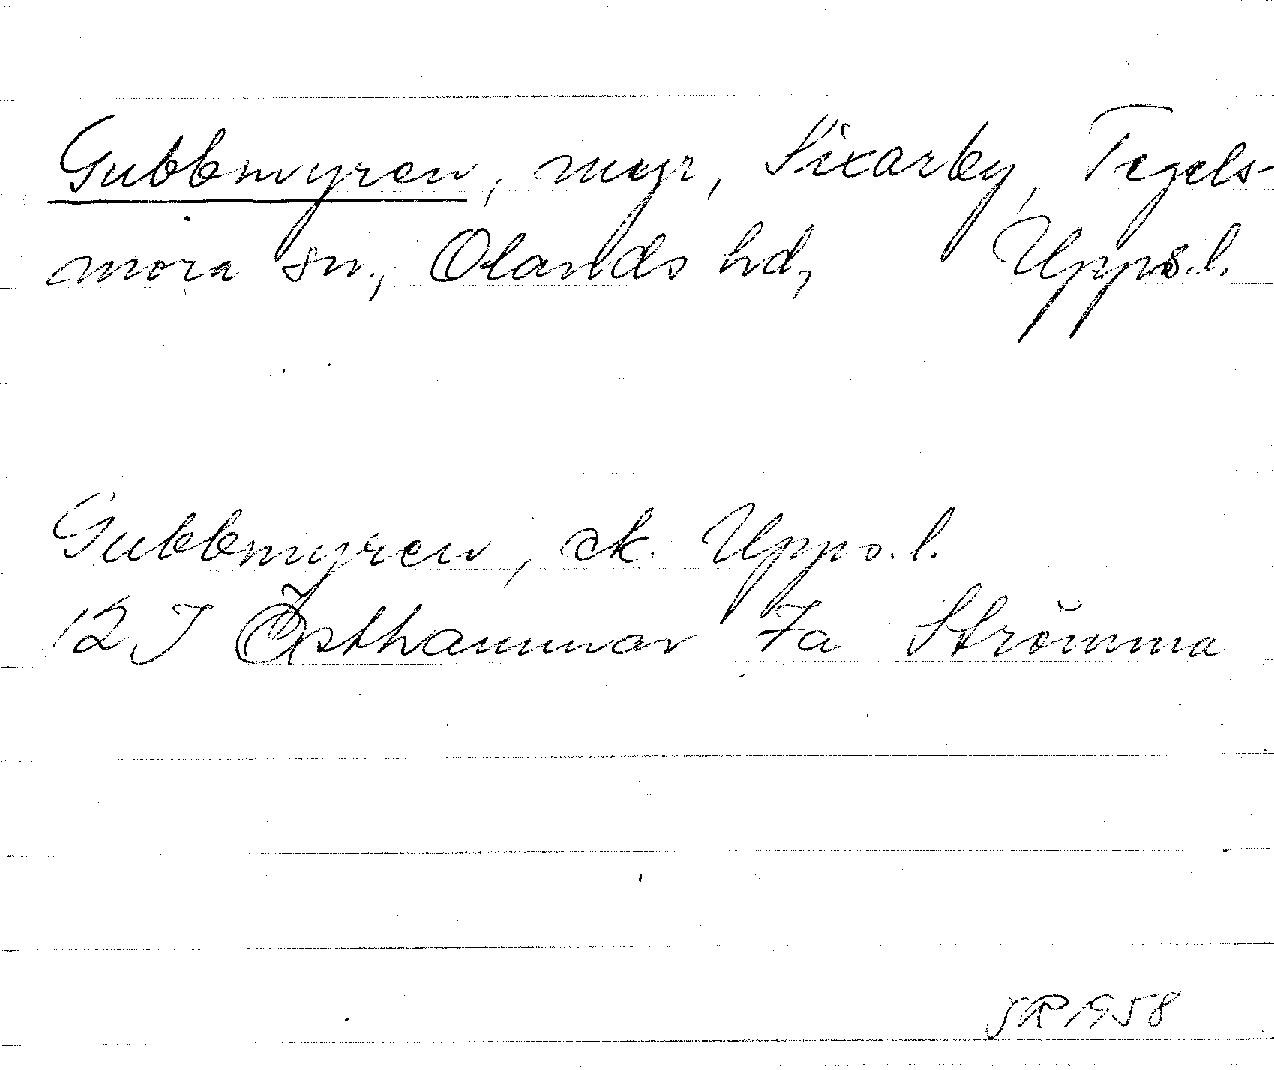 Gubbmyren, myr, Sixarby, Tegels-
mora sn., Olands hd, Upps.l.
Gubbmyren, ek. Upps.l.
12 I Östhammar 7a Strömma
JR 1958